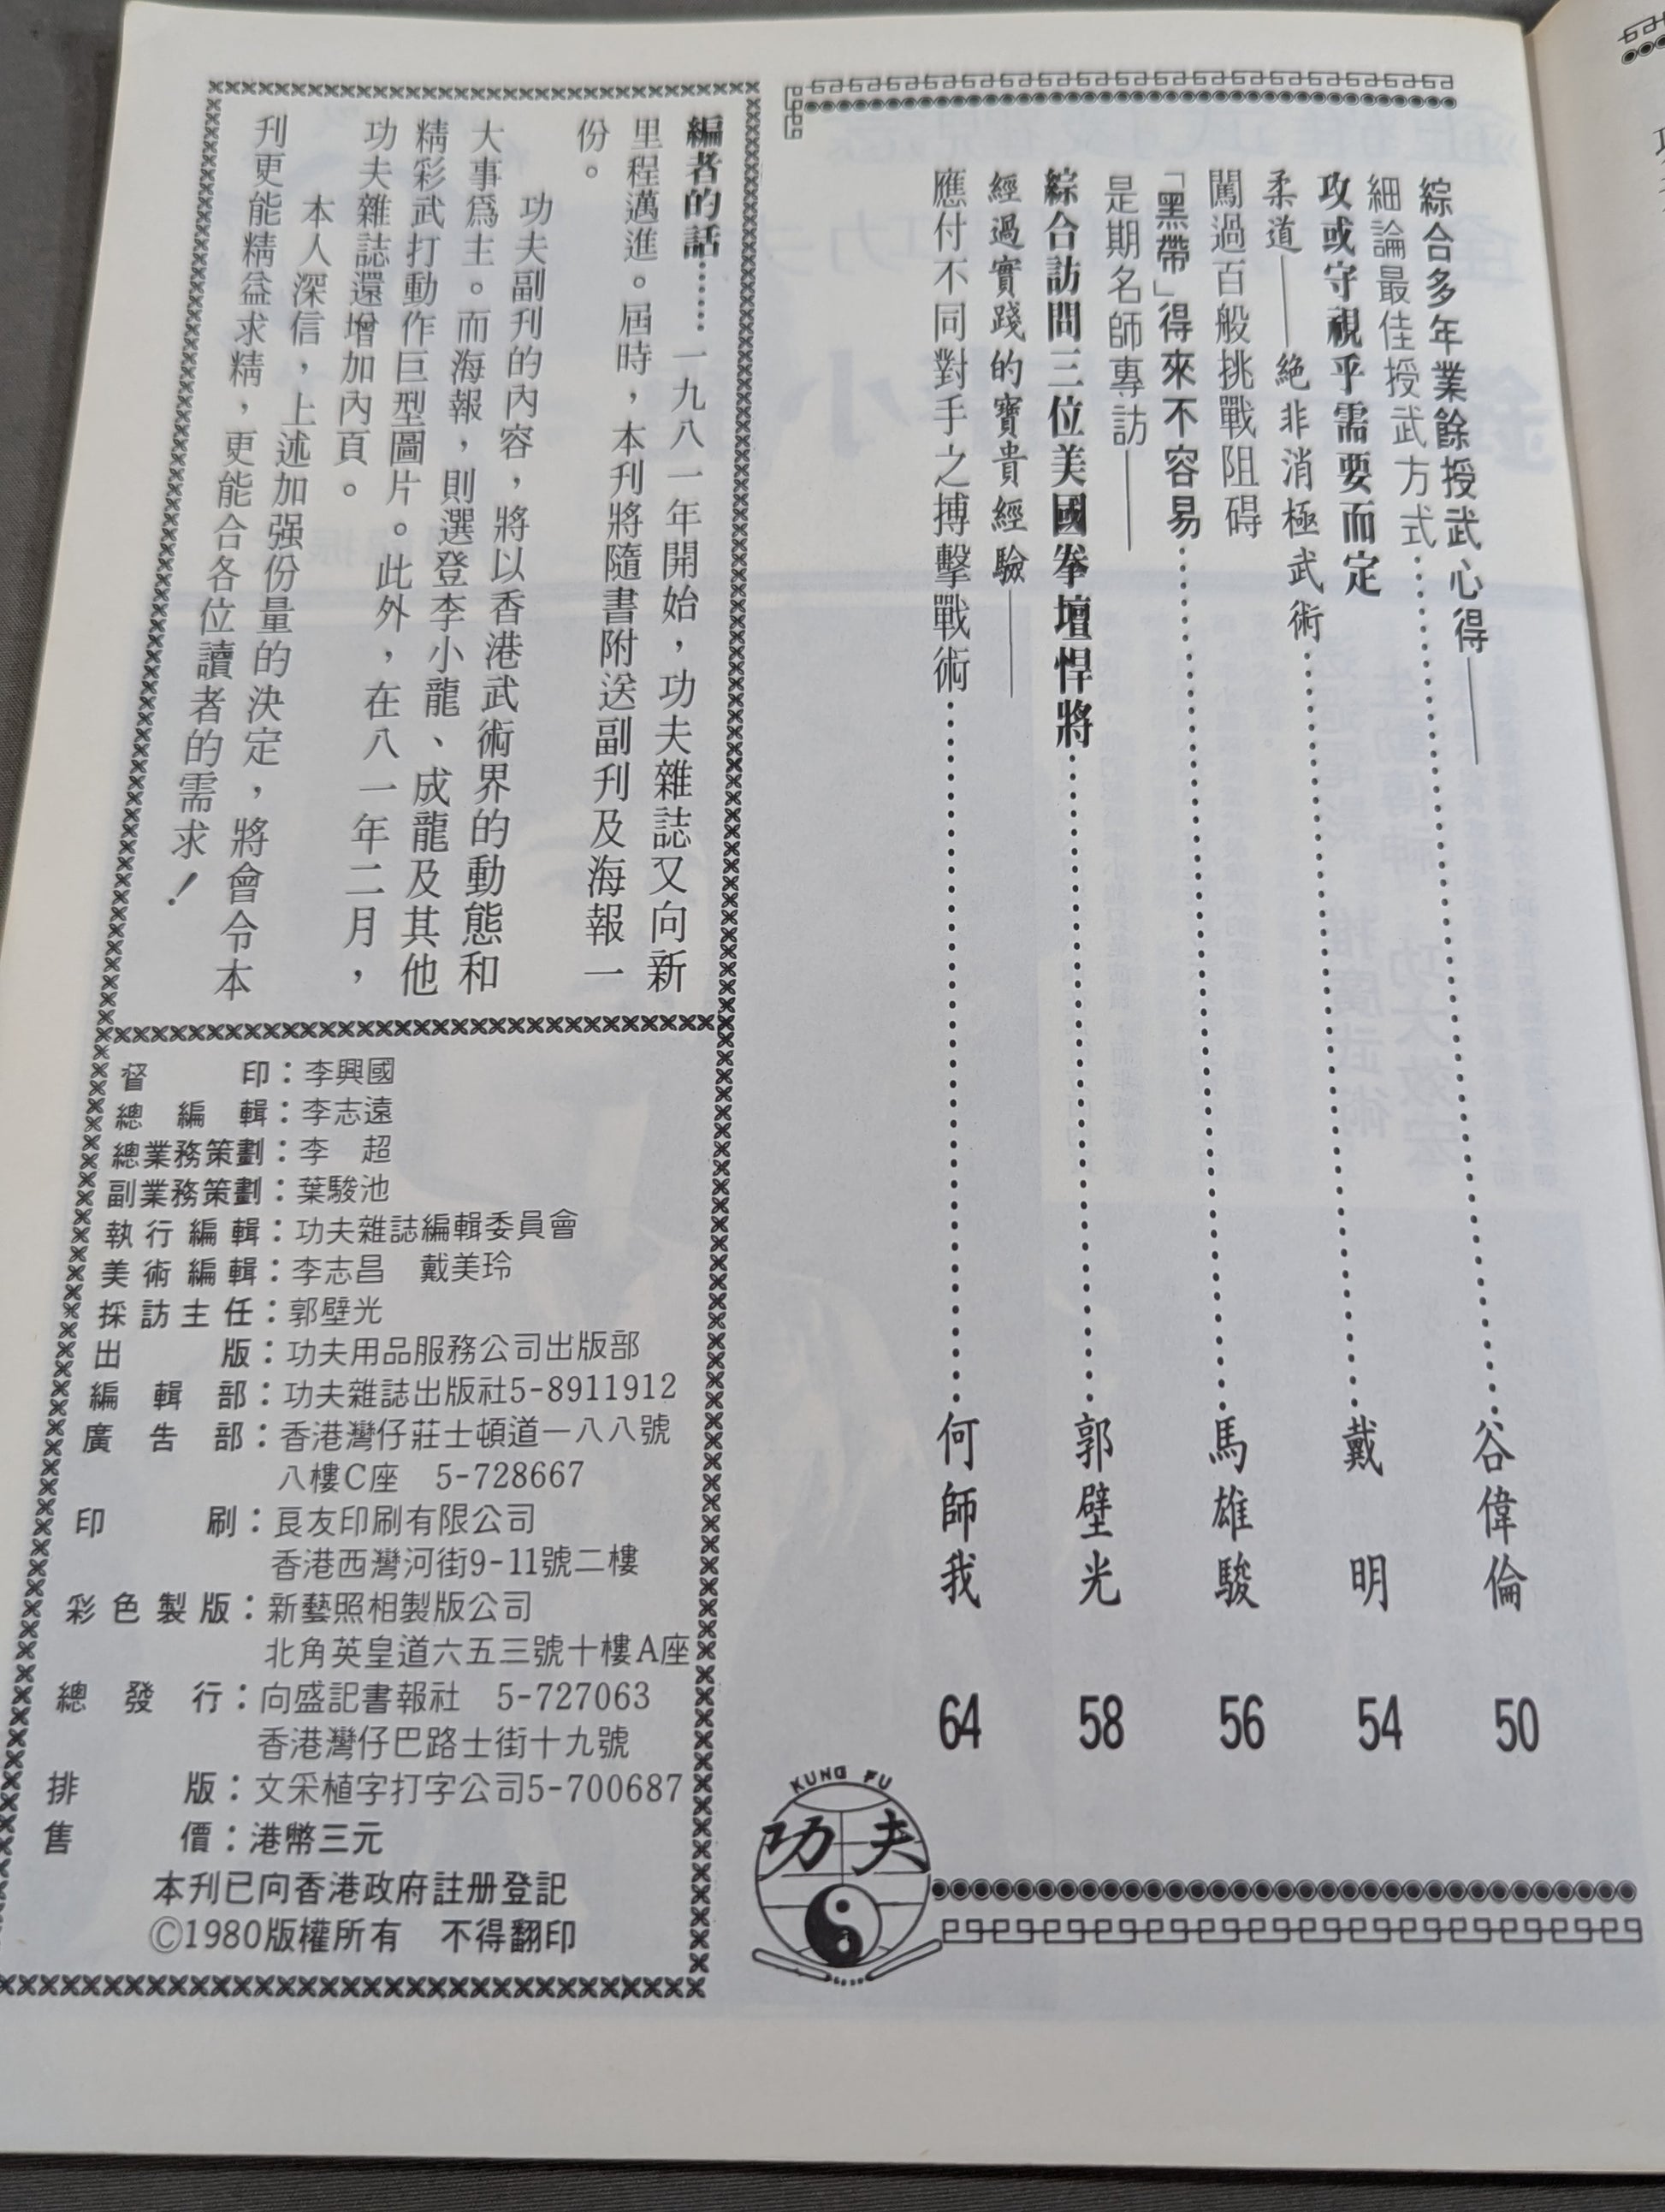 綜合多年業餘授武心得——
細論最佳授武方式……谷偉倫 50
攻或守視乎需要而定
柔道——絶非消極武術……戴　明 54
闖過百般挑戰阻碍
「黑帶」得來不容易……馬雄駿 56
是期名師專訪——
綜合訪問三位美國拳壇悍將……郭壁光 58
經過實踐的寶貴經驗——
應付不同對手之搏擊戰術……何師我 64
KUNG FU
功夫
編者的話……一九八一年開始，功夫雜誌又向新
里程邁進。屆時，本刊將隨書附送副刊及海報一
份。
功夫副刊的內容，將以香港武術界的動態和
大事爲主。而海報，則選登李小龍、成龍及其他
精彩武打動作巨型圖片。此外，在八一年二月，
功夫雜誌還增加內頁。
本人深信，上述加强份量的決定，將會令本
刊更能精益求精，更能合各位讀者的需求！
督印：李興國
總編輯：李志遠
總業務策劃：李　超
副業務策劃：葉駿池
執行編輯：功夫雜誌編輯委員會
美術編輯：李志昌　戴美玲
採訪主任：郭壁光
出版：功夫用品服務公司出版部
編輯部：功夫雜誌出版社5-8911912
廣告部：香港灣仔莊士頓道一八八號
八樓C座　5-728667
印刷：良友印刷有限公司
香港西灣河街9-11號二樓
彩色製版：新藝照相製版公司
北角英皇道六五三號十樓A座
總發行：向盛記書報社　5-727063
香港灣仔巴路士街十九號
排版：文采植字打字公司5-700687
售價：港幣三元
本刊已向香港政府註册登記
©1980版權所有　不得翻印